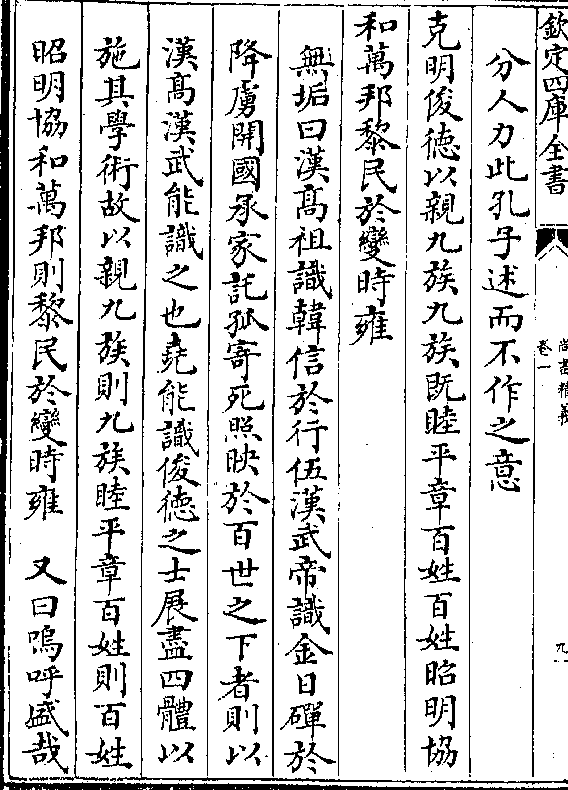 欽定四庫全書
尚書精義
卷一
九
分人力此孔子述而不作之意
克明俊德以親九族九族既睦平章百姓百姓昭明協
和萬邦黎民於變時雍
無垢曰漢髙祖識韓信於行伍漢武帝識金日磾於
降虜開國承家託孤寄死照映於百世之下者則以
漢髙漢武能識之也堯能識俊徳之士展盡四體以
施其學術故以親九族則九族睦平章百姓則百姓
昭明協和萬邦則黎民於變時雍　又曰嗚呼盛哉